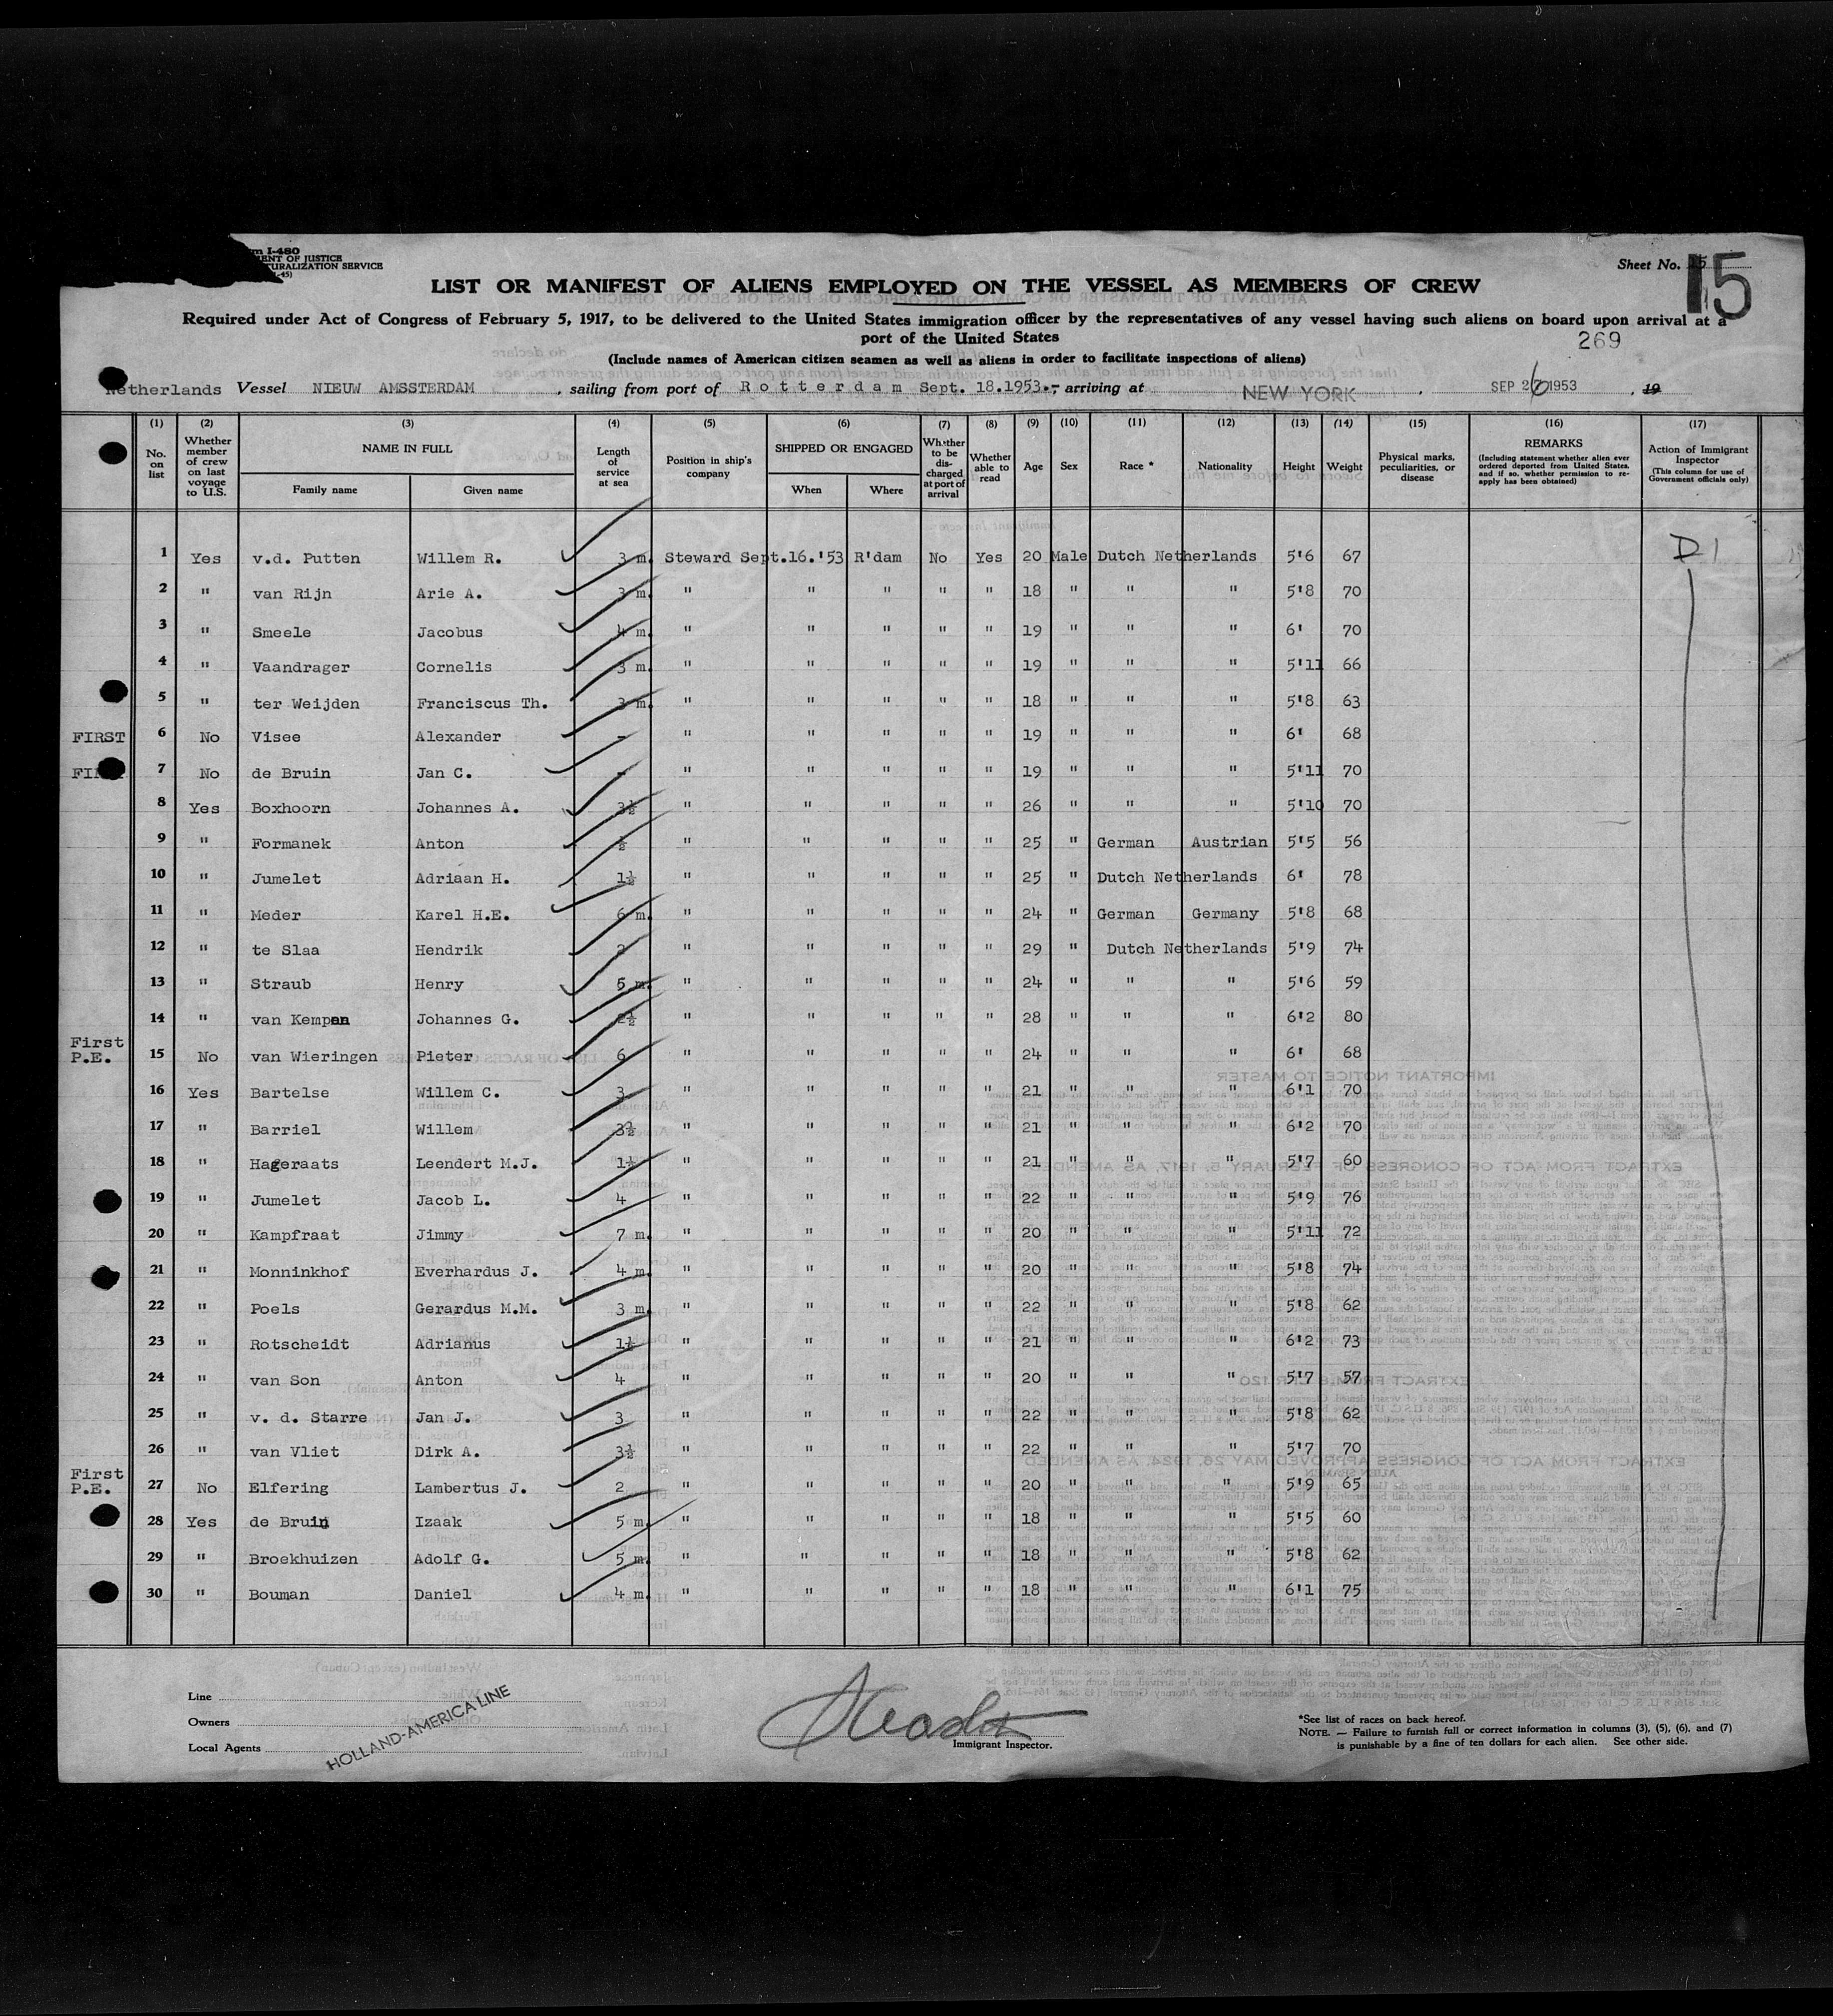 m I-480
ENT OF JUSTICE
TURALIZATION SERVICE
-45)
Sheet No. 15
15
LIST OR MANIFEST OF ALIENS EMPLOYED ON THE VESSEL AS MEMBERS OF CREW
Required under Act of Congress of February 5, 1917, to be delivered to the United States immigration officer by the representatives of any vessel having such aliens on board upon arrival at a
port of the United States
269
(Include names of American citizen seamen as well as aliens in order to facilitate inspections of aliens)
Netherlands Vessel NIEUW AMSSTERDAM , sailing from port of Rotterdam Sept. 18.1953.-, arriving at NEW YORK , SEP 26 1953 , 19
(1) (2) (3) (4) (5) (6) (7) (8) (9) (10) (11) (12) (13) (14) (15) (16) (17)
No. on list Whether member of crew on last voyage to U.S. NAME IN FULL Length of service at sea Position in ship's company SHIPPED OR ENGAGED Whether to be discharged at port of arrival Whether able to read Age Sex Race * Nationality Height Weight Physical marks, peculiarities, or disease REMARKS (Including statement whether alien ever ordered deported from United States, and if so, whether permission to reapply has been obtained) Action of Immigrant Inspector (This column for use of Government officials only)
Family name Given name When Where
1 Yes v.d. Putten Willem R. 3 m. Steward Sept.16.'53 R'dam No Yes 20 Male Dutch Netherlands 5'6 67 D1
2 " van Rijn Arie A. 3 m. " " " " " 18 " " " 5'8 70
3 " Smeele Jacobus 4 m. " " " " " 19 " " " 6' 70
4 " Vaandrager Cornelis 3 m. " " " " " 19 " " " 5'11 66
5 " ter Weijden Franciscus Th. 3 m. " " " " " 18 " " " 5'8 63
FIRST 6 No Visee Alexander - " " " " " 19 " " " 6' 68
FI 7 No de Bruin Jan C. - " " " " " 19 " " " 5'11 70
8 Yes Boxhoorn Johannes A. 3½ " " " " " 26 " " " 5'10 70
9 " Formanek Anton ½ " " " " " 25 " German Austrian 5'5 56
10 " Jumelet Adriaan H. 1½ " " " " " 25 " Dutch Netherlands 6' 78
11 " Meder Karel H.E. 6 m. " " " " " 24 " German Germany 5'8 68
12 " te Slaa Hendrik 2 " " " " " 29 " Dutch Netherlands 5'9 74
13 " Straub Henry 5 m. " " " " " 24 " " " 5'6 59
14 " van Kempen Johannes G. 2½ " " " " " 28 " " " 6'2 80
First P.E. 15 No van Wieringen Pieter 6 " " " " " 24 " " " 6' 68
16 Yes Bartelse Willem C. 3 " " " " " 21 " " " 6'1 70
17 " Barriel Willem 3½ " " " " " 21 " " " 6'2 70
18 " Hageraats Leendert M.J. 1½ " " " " " 21 " " " 5'7 60
19 " Jumelet Jacob L. 4 " " " " " 22 " " " 5'9 76
20 " Kampfraat Jimmy 7 m. " " " " " 20 " " " 5'11 72
21 " Monninkhof Everhardus J. 4 m. " " " " " 20 " " " 5'8 74
22 " Poels Gerardus M.M. 3 m. " " " " " 22 " " " 5'8 62
23 " Rotscheidt Adrianus 1½ " " " " " 21 " " " 6'2 73
24 " van Son Anton 4 " " " " " 20 " " " 5'7 57
25 " v. d. Starre Jan J. 3 " " " " " 22 " " " 5'8 62
26 " van Vliet Dirk A. 3½ " " " " " 22 " " " 5'7 70
First P.E. 27 No Elfering Lambertus J. 2 " " " " " 20 " " " 5'9 65
28 Yes de Bruin Izaak 5 m. " " " " " 18 " " " 5'5 60
29 " Broekhuizen Adolf G. 5 m. " " " " " 18 " " " 5'8 62
30 " Bouman Daniel 4 m. " " " " " 18 " " " 6'1 75
Line
Owners
Local Agents
HOLLAND-AMERICA LINE
Immigrant Inspector.
*See list of races on back hereof.
NOTE. — Failure to furnish full or correct information in columns (3), (5), (6), and (7)
is punishable by a fine of ten dollars for each alien. See other side.